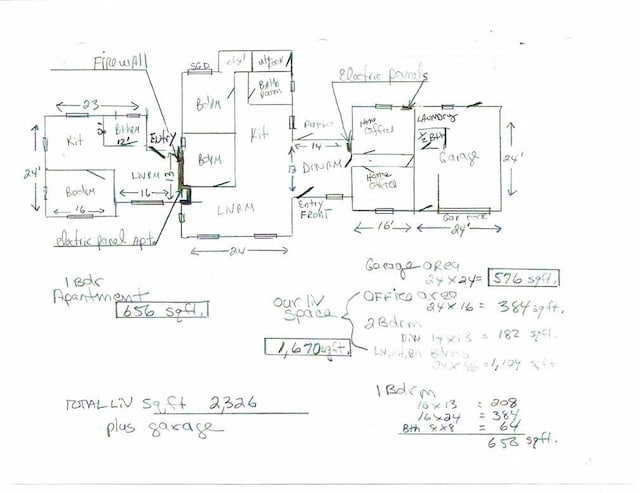 Firewall
Electric panels
S.G.D.
clst
Bath
room
BdRM
23
Kit
BthRM
12'
Entry
Kit
Patio
14
Home
Office
LAUNDRY
1/2 Bth
Garage
24'
24'
BdRM
13
DINRM
13
Home
Office
LVRM
16
BedRM
16
LVRM
Entry
Front
Gar door
electric panel Apt.
24
16'
24'
Garage area
24 x 24 = 576 sqft.
1 Bdr
Apartment
656 sqft.
our liv
space
1,670 sqft.
Office area
24 x 16 = 384 sqft.
2 Bdrm
Din 14 x 13 = 182 sqft.
= 1,104 sqft
TOTAL LIV sqft 2,326
plus garage
1 Bdrm
16 x 13 = 208
16 x 24 = 384
Bth 8 x 8 = 64
656 sqft.